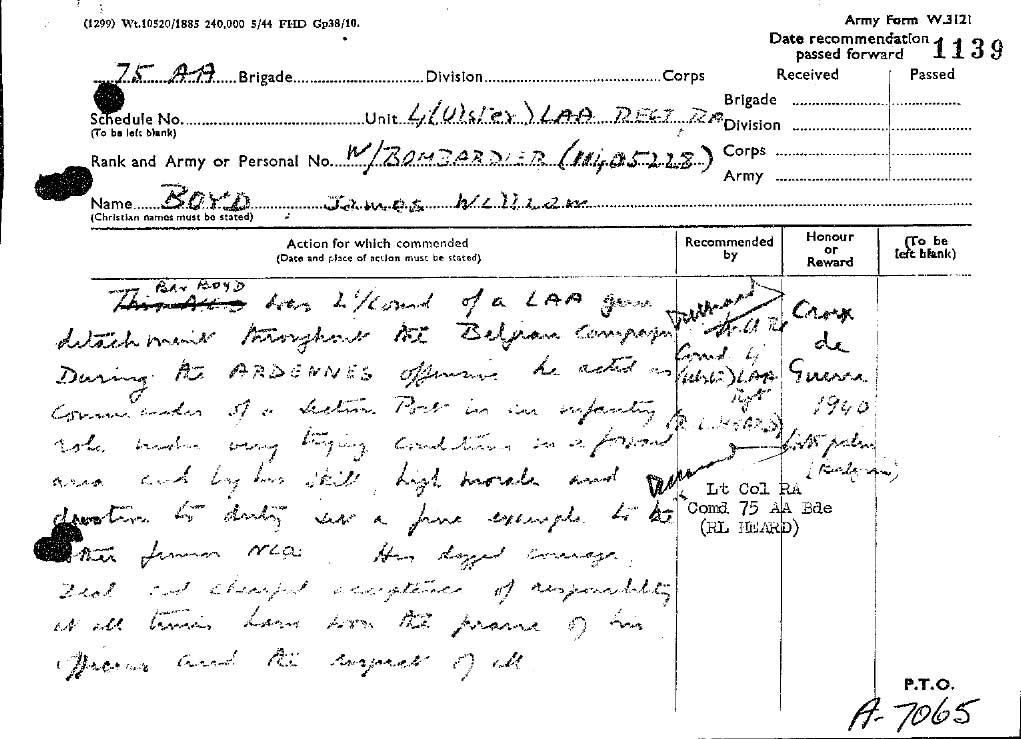 (1299) Wt.10520/1885 240,000 5/44 FHD Gp38/10.
Army Form W.3121
Date recommendation
passed forward
1139
Received Passed
75 AA Brigade Division Corps
Brigade
Schedule No. Unit 4 (Ulster) LAA REGT, RA
(To be left blank)
Division
Rank and Army or Personal No. W/BOMBARDIER
Corps
Army
Name BOYD James William
(Christian names must be stated)
Action for which commended
(Date and place of action must be stated)
Recommended
by
Honour
or
Reward
(To be
left blank)
Bdr BOYD
was 2i/Comd of a LAA gun
detachment throughout the Belgian Campaign
During the ARDENNES offensive he acted as
Commander of a Section Post in an infantry
role under very trying conditions in a forward
area and by his skill, high morale and
devotion to duty set a fine example to the
other junior NCOs. His dogged courage,
zeal and cheerful acceptance of responsibility
at all times have won the praise of his
officers and the respect of all
Comd 4
(Ulster) LAA
Regt
Lt Col RA
Comd 75 AA Bde
(RL HEARD)
Croix
de
Guerre
1940
with palm
(Belgium)
P.T.O.
A-7065